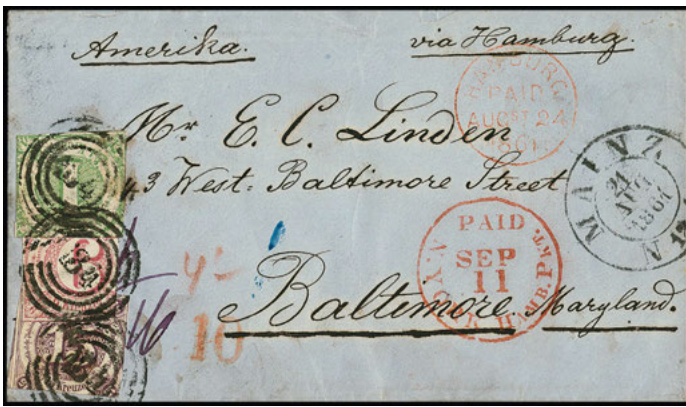 Amerika. via Hamburg.
HAMBURG
PAID
AUGST 24
1861
Mr E. C. Linden
43 West: Baltimore Street
MAINZ
21
AUG
1861
N
PAID
SEP
11
N. YORK HAMB. PKT.
Baltimore. Maryland.
134
134
134
3
Kreuzer
10